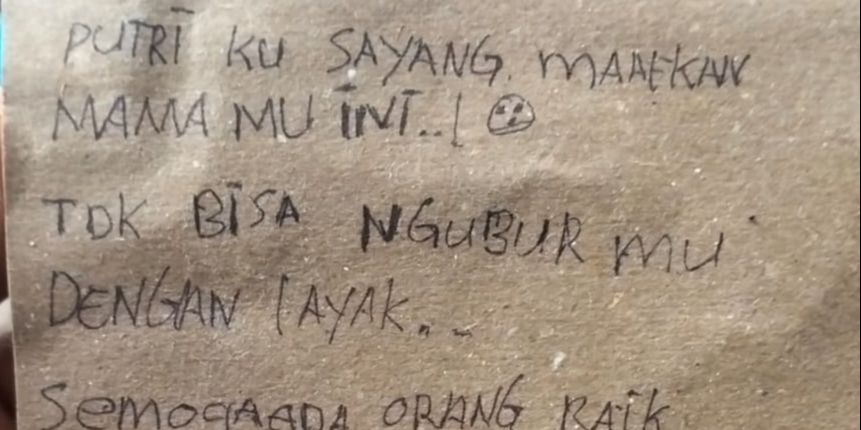 PUTRI KU SAYANG. MAAFKAN
MAMA MU INI..!
TDK BISA NGUBUR MU
DENGAN LAYAK..
SEMOGA ADA ORANG BAIK